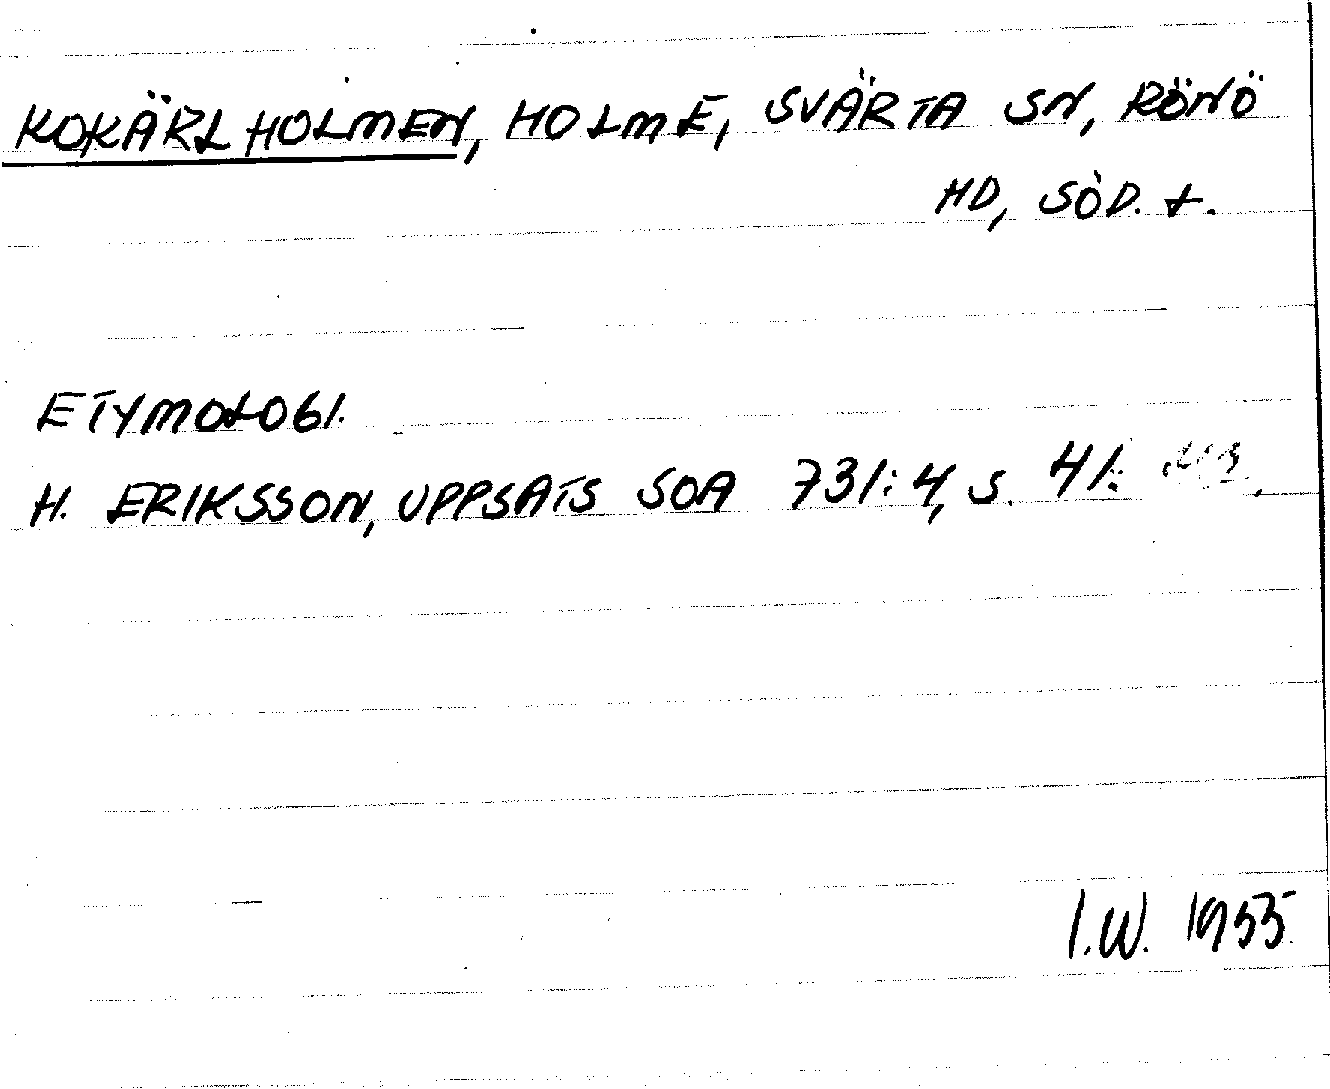 KOKÄRLHOLMEN, HOLME, SVÄRTA SN, RÖNÖ
HD, SÖD. L.
ETYMOLOGI.
H. ERIKSSON, UPPSATS SOA 731:4, S. 41.
I.W. 1955.